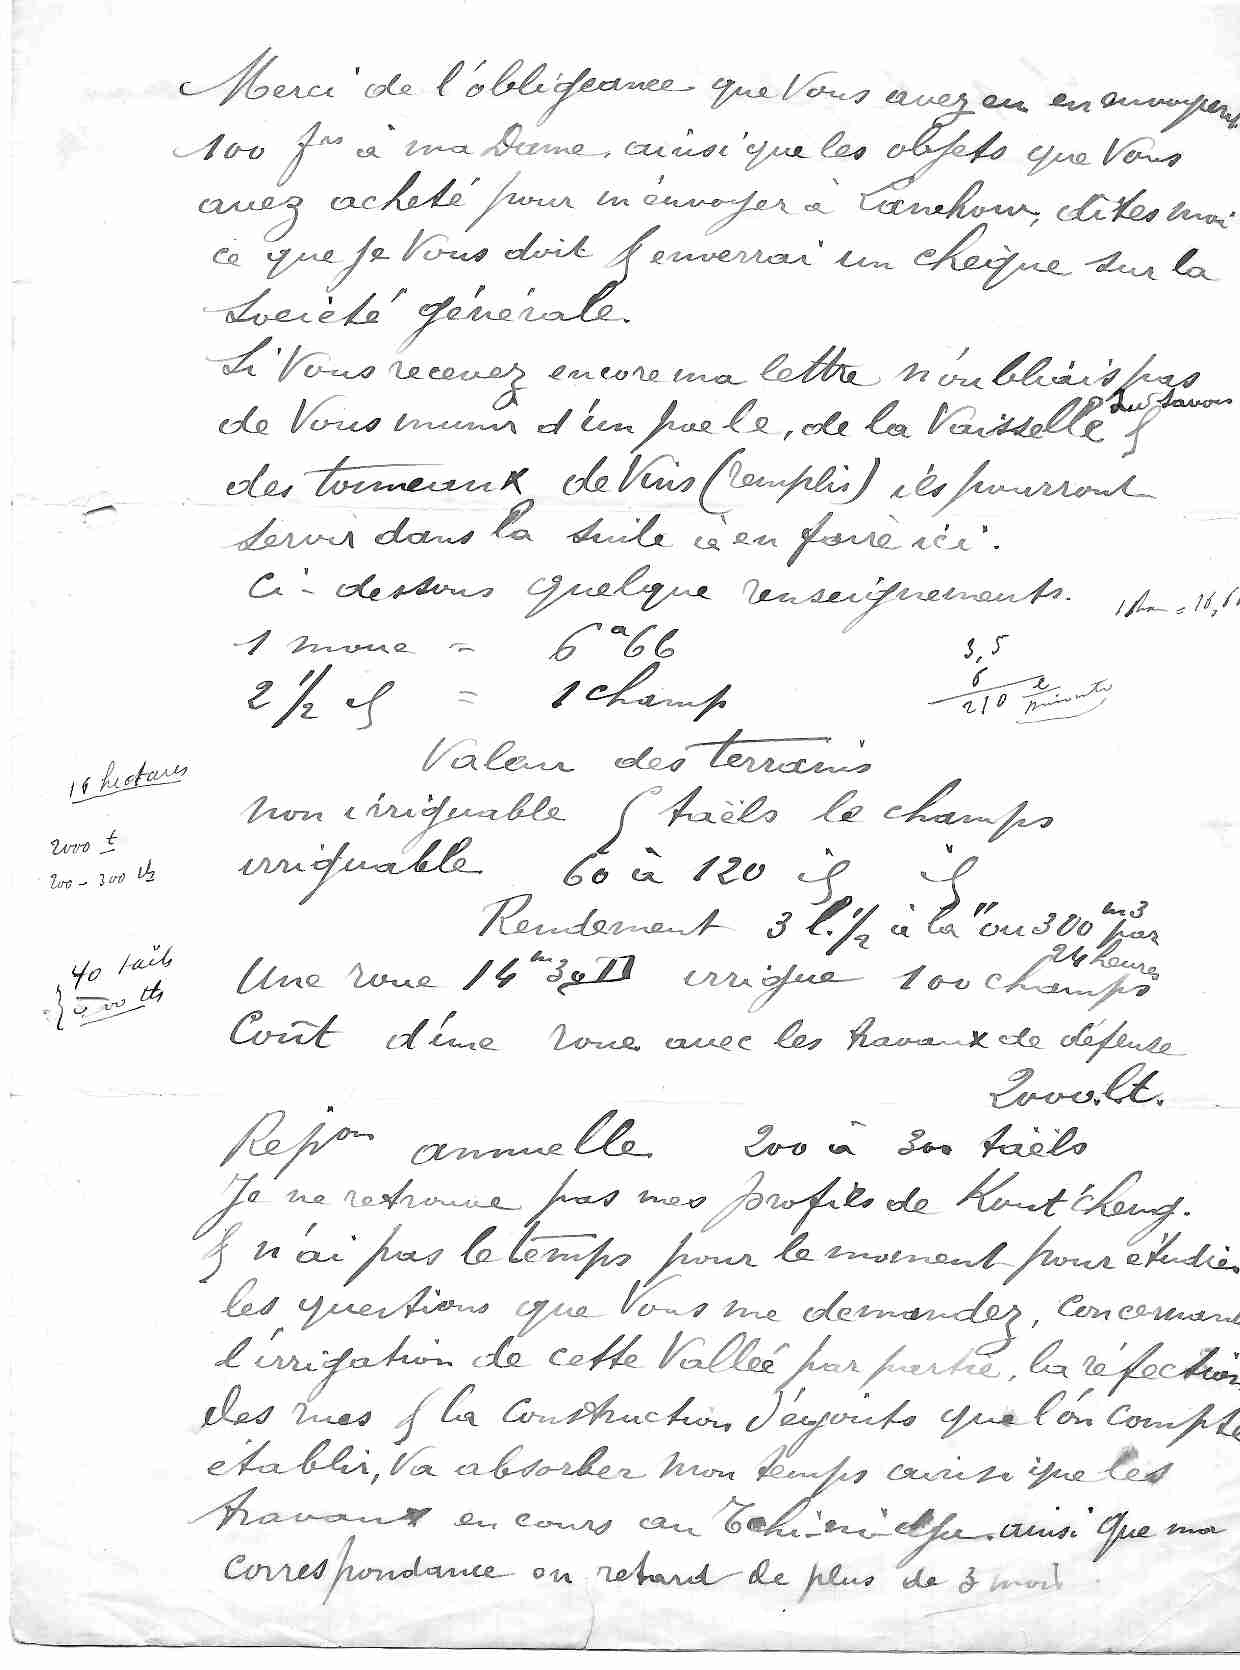 Merci de l'obligeance que Vous avez eu en envoyant
100 frs à ma Dame, ainsi que les objets que Vous
avez acheté pour m'envoyer à Lanchow, dites moi
ce que je Vous doit & enverrai un chèque sur la
Société générale.
Si Vous recevez encore ma lettre n'oubliais pas
de Vous munir d'un poele, de la Vaisselle du savon &
des tonneaux de Vins (remplis) ils pourront
servir dans la suite à en faire ici.
Ci-dessous quelque renseignements.
1 moue = 6a66
3,5
6
210 l minute
2 1/2 id = 1 champ
Valeur des terrains
16 hectares
non irriguable 5 taëls le champs
2000 t
irriguable 60 à 120 id id
200 - 300 tls
Rendement 3 l. 1/2 à la " ou 300 m3 par
24 heures
40 taëls
Une roue 14m irrigue 100 champs
Coût d'une roue avec les travaux de défense
2000.l.t.
Repon annuelle 200 à 300 taëls
Je ne retrouve pas mes profils de Kout'cheng.
& n'ai pas le temps pour le moment pour étudier
les questions que Vous me demandez, concernant
l'irrigation de cette Vallée par partie, la réfection
des rues & la construction d'égouts que l'on compte
établir, Va absorber mon temps ainsi que les
travaux en cours au ainsi que ma
correspondance en retard de plus de 3 mois